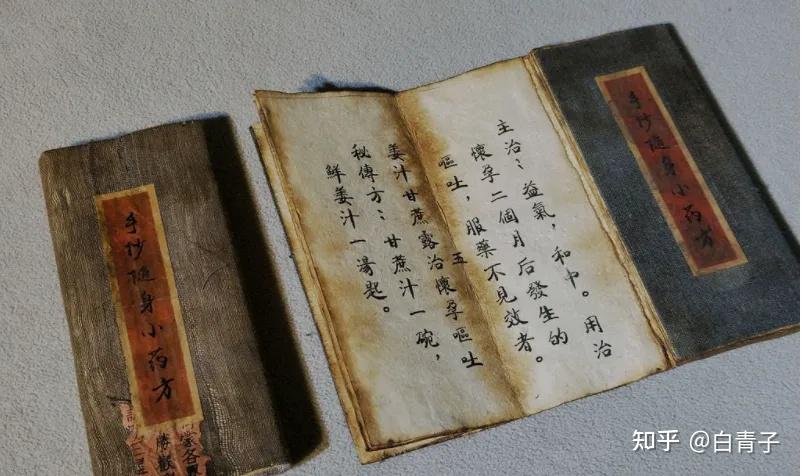 手抄随身小药方
主治：益氣，和中。用治
懷孕二個月后發生的
嘔吐，服藥不見效者。
五
姜汁甘蔗露治懷孕嘔吐
秘傳方：甘蔗汁一碗，
鮮姜汁一湯匙。
手抄随身小药方
知乎 @白青子